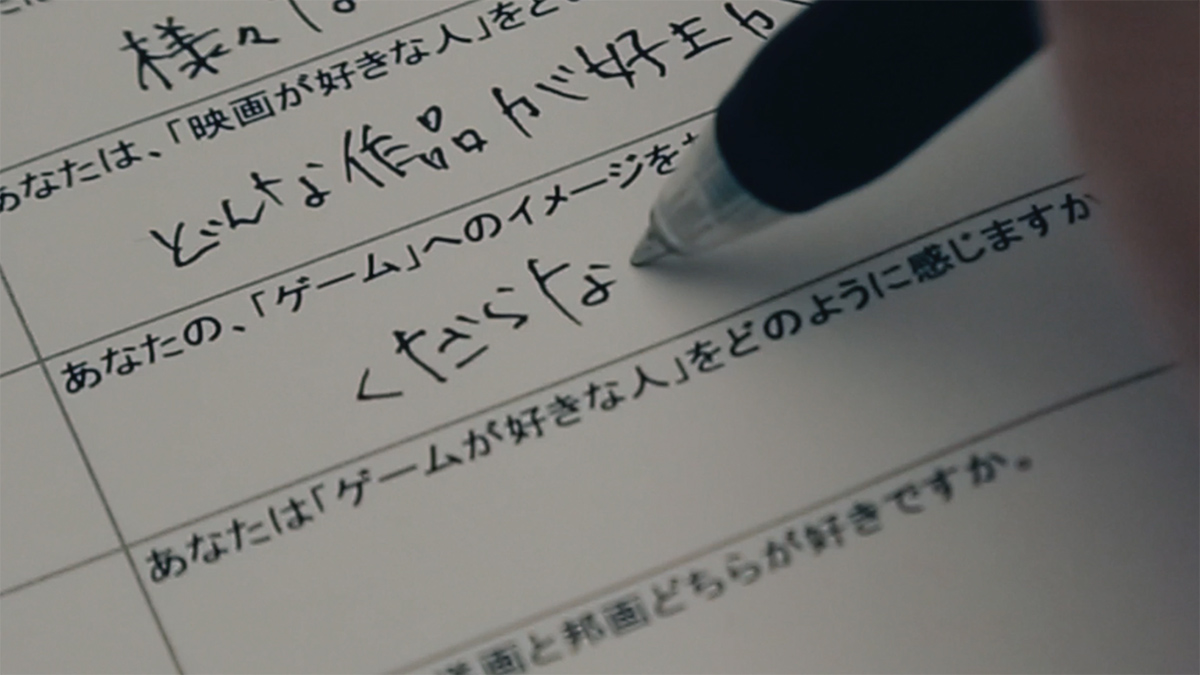 様々な
あなたは、「映画が好きな人」をど
どんな作品が好きか
あなたの、「ゲーム」へのイメージを
くだらな
あなたは「ゲームが好きな人」をどのように感じますか
洋画と邦画どちらが好きですか。